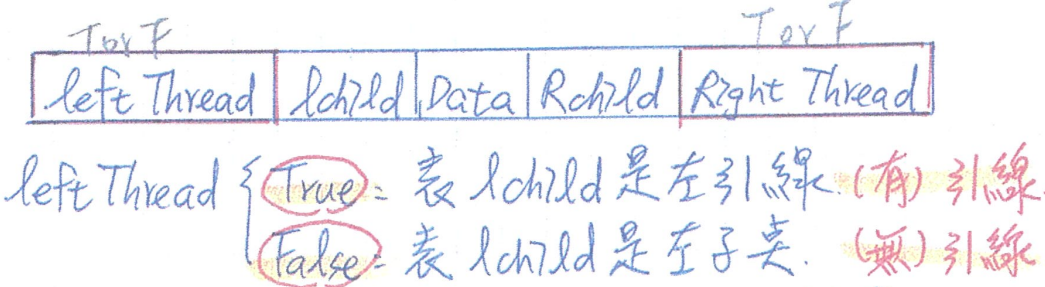 T or F T or F
left Thread lchild Data Rchild Right Thread
left Thread { True: 表 lchild 是左引線. (有) 引線.
False: 表 lchild 是左子点. (無) 引線